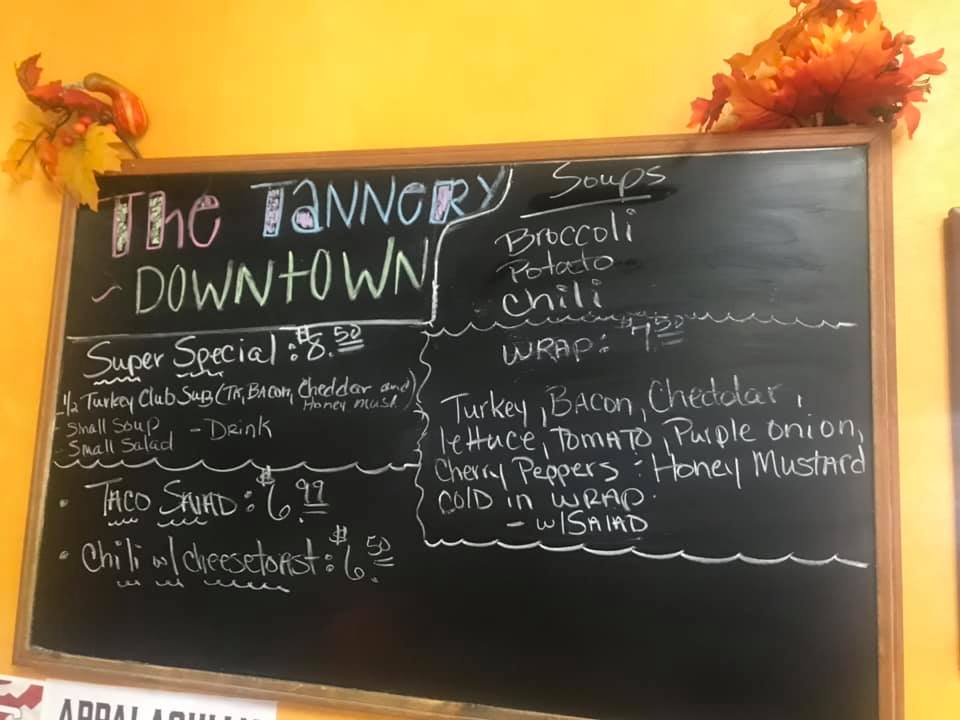 The Tannery
~ Downtown
Super Special: $8.50
- 1/2 Turkey Club Sub (Tk, Bacon, Cheddar and
Honey must.)
- Small Soup
- Small Salad
- Drink
• Taco Salad: $6.99
• Chili w/ cheesetoast: $6.50
Soups
Broccoli
Potato
Chili
WRAP: $7.50
Turkey, BACON, Cheddar,
lettuce, TOMATO, Purple onion,
Cherry Peppers : Honey Mustard
COLD in WRAP.
- w/SALAD